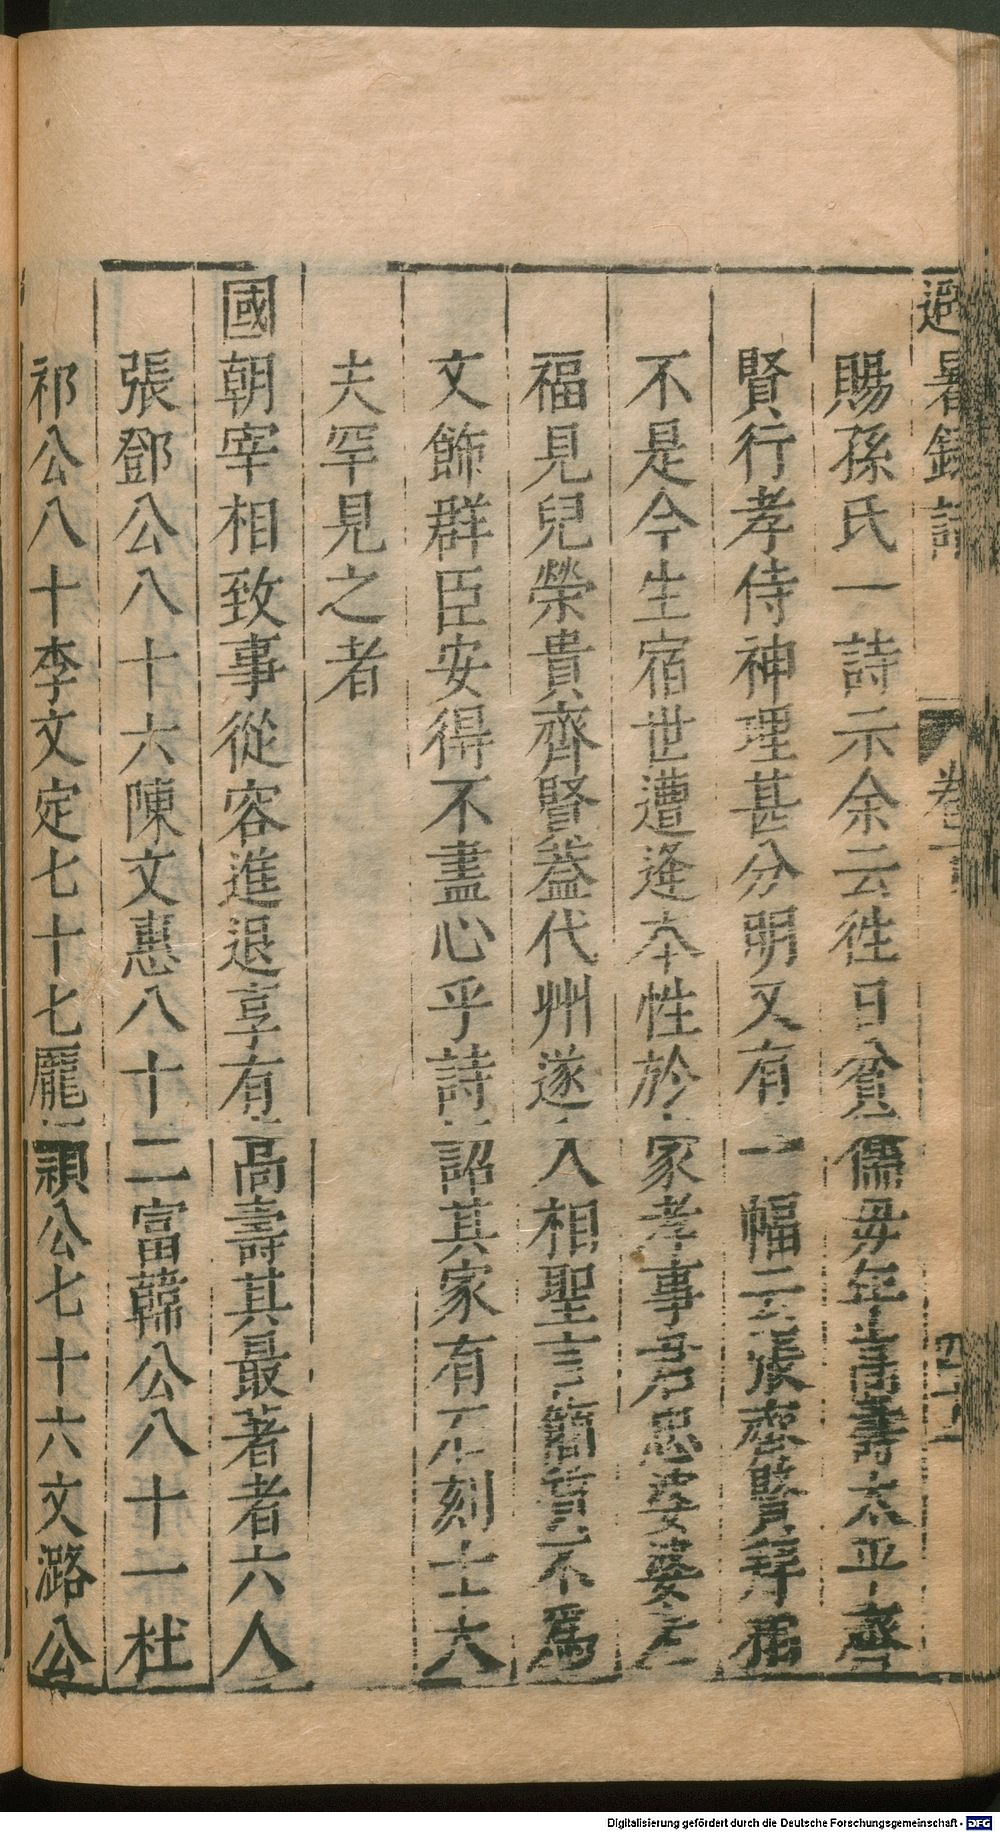 避暑錄話 卷一
賜孫氏一詩示余云徃日貧儒毋年壽太平齊
賢行孝侍神理甚分明又有一幅云張齊賢拜福
不是今生宿世遭逄本性於家孝事君忠婆婆老
福見兒榮貴齊賢葢代州遂入相聖言簡質不爲
文飾群臣安得不盡心乎詩詔其家有石刻士大
夫罕見之者
國朝宰相致事從容進退享有高壽其最著者六人
張鄧公八十六陳文惠八十二富韓公八十一杜
祁公八十李文定七十七龐頴公七十六文潞公
Digitalisierung gefördert durch die Deutsche Forschungsgemeinschaft - DFG